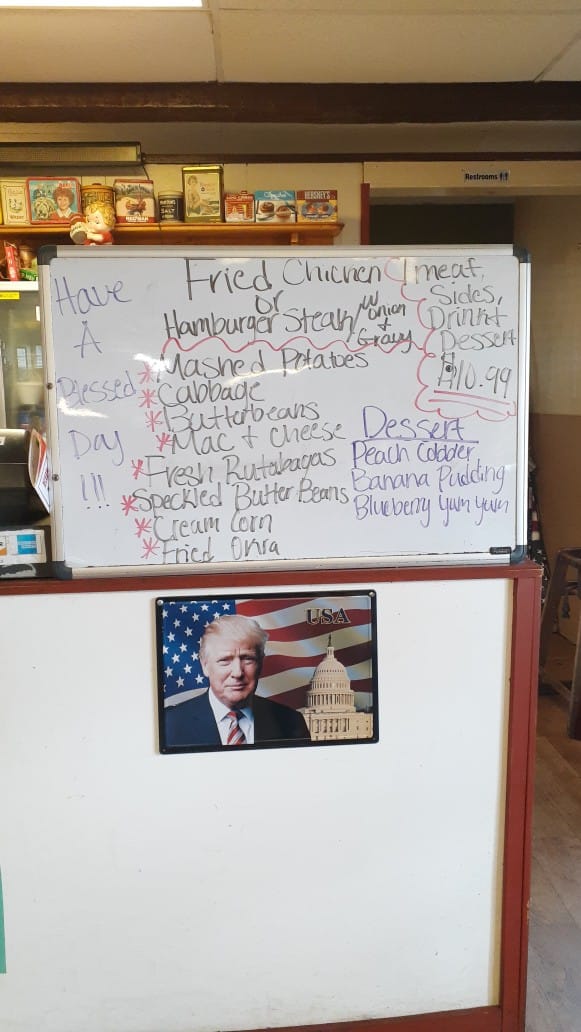 Restrooms
HERSHEY'S
SALT
Have
A
Blessed
Day
!!!
Fried Chicken
or
Hamburger Steak/ w/ Onion
+
Gravy
1 meat,
Sides,
Drink +
Dessert
$10.99
*Mashed Potatoes
*Cabbage
*Butterbeans
*Mac + Cheese
*Fresh Rutabagas
*Speckled Butter Beans
*Cream Corn
*Fried Okra
Dessert
Peach Cobbler
Banana Pudding
Blueberry Yum Yum
USA